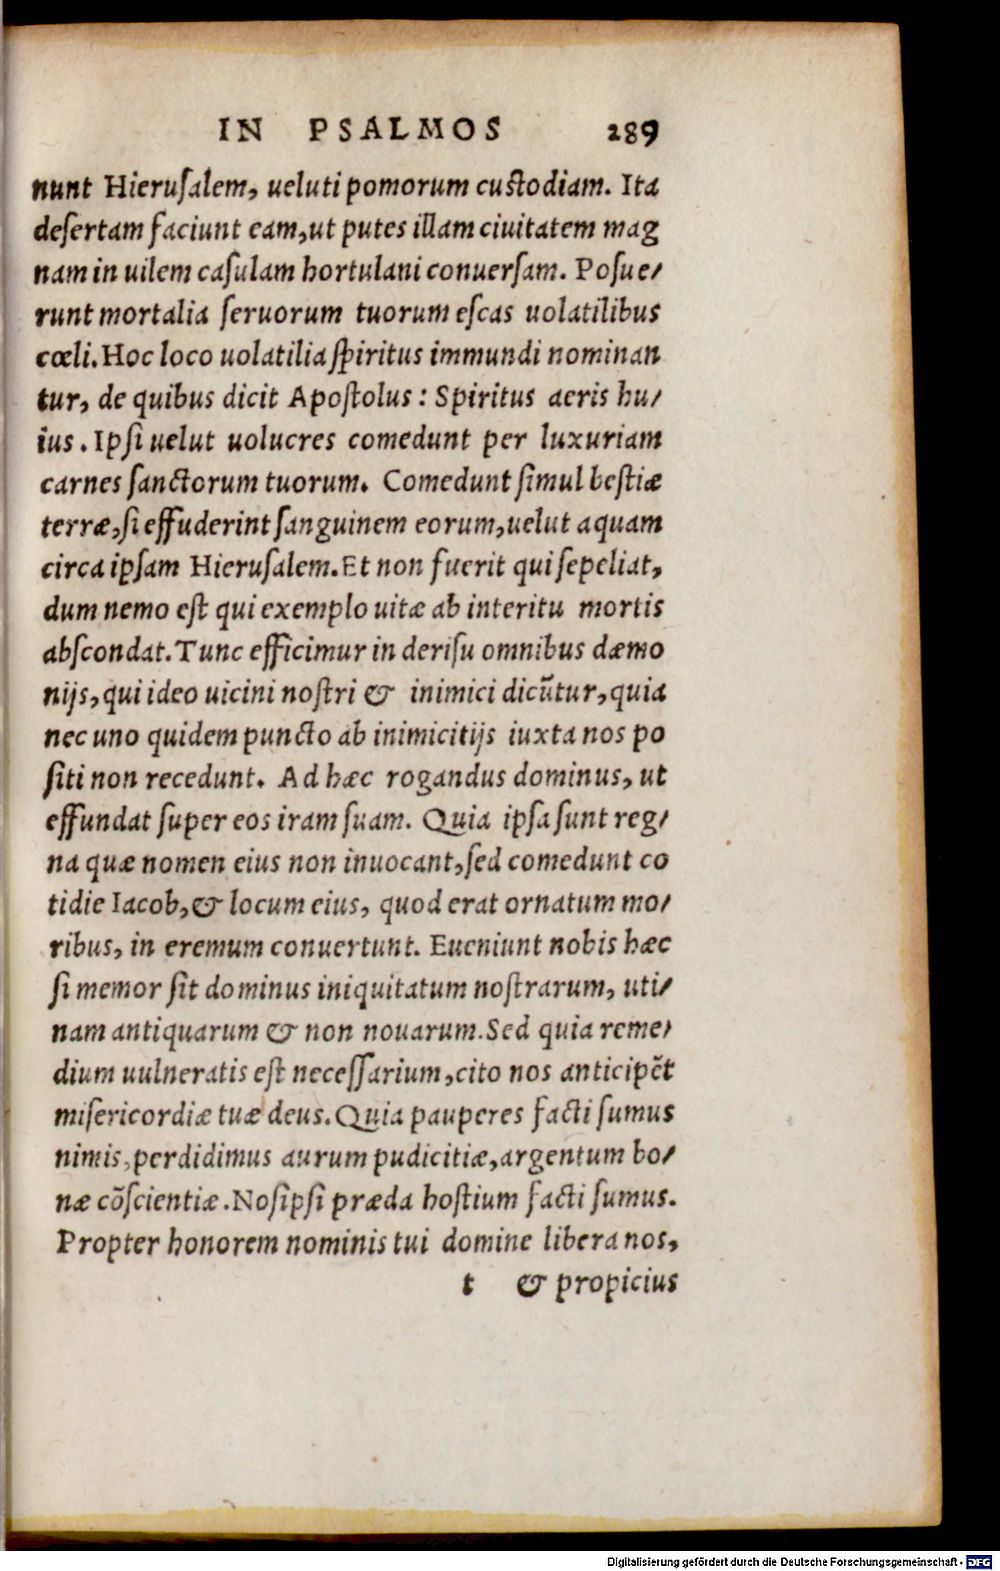 IN PSALMOS 289
nunt Hierusalem, ueluti pomorum custodiam. Ita
desertam faciunt eam, ut putes illam ciuitatem mag
nam in uilem casulam hortulani conuersam. Posue/
runt mortalia seruorum tuorum escas uolatilibus
cœli. Hoc loco uolatilia spiritus immundi nominan
tur, de quibus dicit Apostolus: Spiritus aeris hu/
ius. Ipsi uelut uolucres comedunt per luxuriam
carnes sanctorum tuorum. Comedunt simul bestiæ
terræ, si effuderint sanguinem eorum, uelut aquam
circa ipsam Hierusalem. Et non fuerit qui sepeliat,
dum nemo est qui exemplo uitæ ab interitu mortis
abscondat. Tunc efficimur in derisu omnibus dæmo
nijs, qui ideo uicini nostri & inimici dicũtur, quia
nec uno quidem puncto ab inimicitijs iuxta nos po
siti non recedunt. Ad hæc rogandus dominus, ut
effundat super eos iram suam. Quia ipsa sunt reg/
na quæ nomen eius non inuocant, sed comedunt co
tidie Iacob, & locum eius, quod erat ornatum mo/
ribus, in eremum conuertunt. Eueniunt nobis hæc
si memor sit dominus iniquitatum nostrarum, uti/
nam antiquarum & non nouarum. Sed quia reme/
dium uulneratis est necessarium, cito nos anticipẽt
misericordiæ tuæ deus. Quia pauperes facti sumus
nimis, perdidimus aurum pudicitiæ, argentum bo/
næ cõscientiæ. Nos ipsi præda hostium facti sumus.
Propter honorem nominis tui domine libera nos,
t & propicius
Digitalisierung gefördert durch die Deutsche Forschungsgemeinschaft - DFG